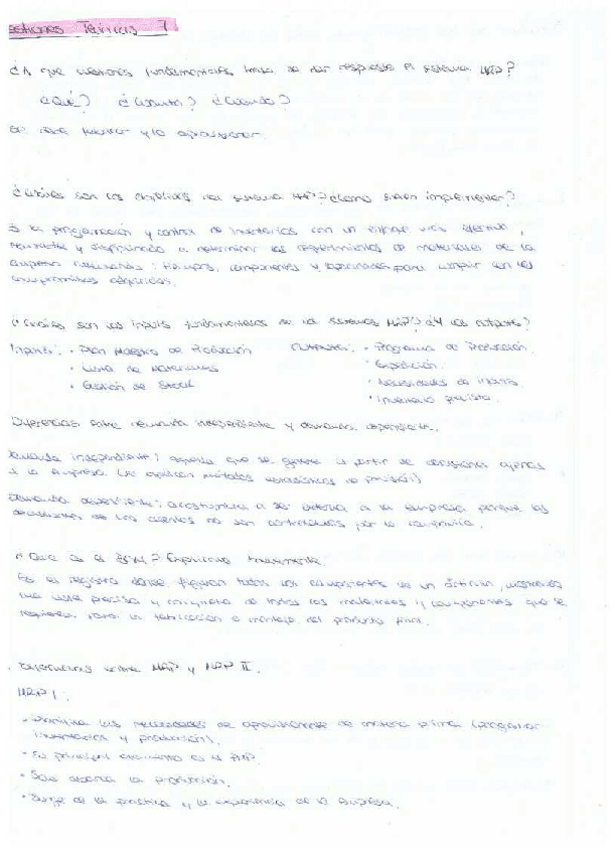 Cuestiones Teóricas 7
¿A que cuestiones fundamentales trata de dar respuesta el sistema MRP?
¿Qué? ¿Cuánto? ¿Cuándo?
Se debe fabricar y/o aprovisionar.
¿Cuáles son los objetivos del sistema MRP? ¿Cómo suelen implementar?
Es la programación y control de inventarios con un enfoque más efectivo,
y disciplinado a determinar los requerimientos de materiales de la
empresa : tiempos, componentes y capacidades para cumplir con los
compromisos adquiridos.
¿Cuáles son los inputs fundamentales de los sistemas MRP? ¿Y los outputs?
Inputs: • Plan Maestro de Producción
• Lista de Materiales
• Gestión de Stock
Outputs: • Programa de Producción.
• Expedición.
• Necesidades de
• Inventario previsto.
Diferencias entre demanda independiente y demanda dependiente.
Demanda independiente: aquella que se genera a partir de decisiones ajenas
a la empresa. (Se aplican métodos estadísticos de previsión)
Demanda dependiente: acostumbra a ser externa a la empresa porque las
decisiones de los clientes no son controladas por la compañía.
¿Que es el BOM? Explícalo brevemente.
Es el registro donde figuran todos los componentes de un artículo, mostrando
una lista precisa y completa de todos los materiales y componentes que se
requieren para la fabricación o montaje del producto final.
Diferencias entre MRP y MRP II.
MRP I.
• Planifica las necesidades de aprovisionar de materia prima (programar
inventarios y producción).
• Su principal es el PMP.
• Solo abarca la producción.
• Surge de la práctica y la experiencia de la empresa.